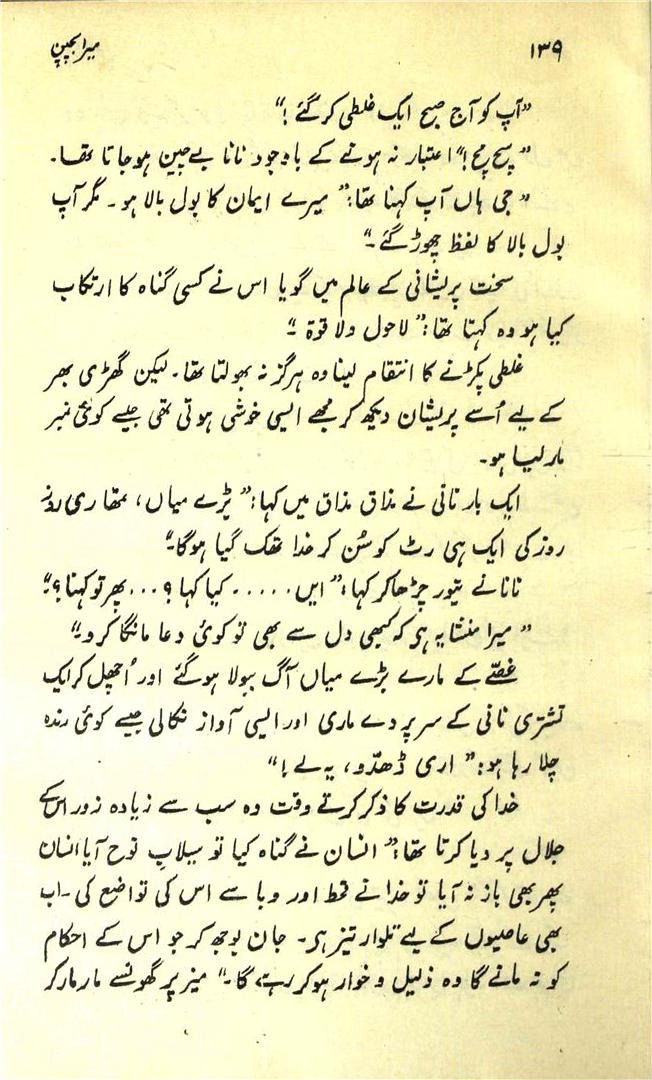 ۱۳۹ میرا بچپن
”آپ کو آج صبح ایک غلطی کر گئے!“
”سچ مچ!“ اعتبار نہ ہونے کے باوجود نانا بے چین ہو جاتا تھا۔
”جی ہاں آپ کہنا تھا:” میرے ایمان کا بول بالا ہو۔ مگر آپ
بول بالا کا لفظ چھوڑ گئے۔“
سخت پریشانی کے عالم میں گویا اس نے کسی گناہ کا ارتکاب
کیا ہو وہ کہتا تھا:” لاحول ولا قوۃ ۔“
غلطی پکڑنے کا انتقام لینا وہ ہرگز نہ بھولتا تھا۔ لیکن گھڑی بھر
کے لیے اُسے پریشان دیکھ کر مجھے ایسی خوشی ہوتی تھی جیسے کوئی نمبر
مار لیا ہو۔
ایک بار نانی نے مذاق مذاق میں کہا:” بڑے میاں، تمھاری روز
روز کی ایک ہی رٹ کو سُن کر خدا تھک گیا ہوگا۔“
نانا نے تیور چڑھا کر کہا:” ایں ..... کیا کہا؟... پھر تو کہنا؟“
”میرا منشا یہ ہی کہ کبھی دل سے بھی تو کوئی دعا مانگا کرو۔“
غصّے کے مارے بڑے میاں آگ ببولا ہوگئے اور اُچھل کر ایک
تشتری نانی کے سر پر دے ماری اور ایسی آواز نکالی جیسے کوئی رندہ
چلا رہا ہو:” اری ڈھڈّو، یہ لے!“
خدا کی قدرت کا ذکر کرتے وقت وہ سب سے زیادہ زور اس کے
جلال پر دیا کرتا تھا:” انسان نے گناہ کیا تو سیلابِ نوح آیا انسان
پھر بھی باز نہ آیا تو خدا نے قحط اور وبا سے اس کی تواضع کی۔ اب
بھی عاصیوں کے لیے تلوار تیز ہی۔ جان بوجھ کر جو اس کے احکام
کو نہ مانے گا وہ ذلیل و خوار ہو کر رہے گا۔“ میز پر گھونسے مار مار کر